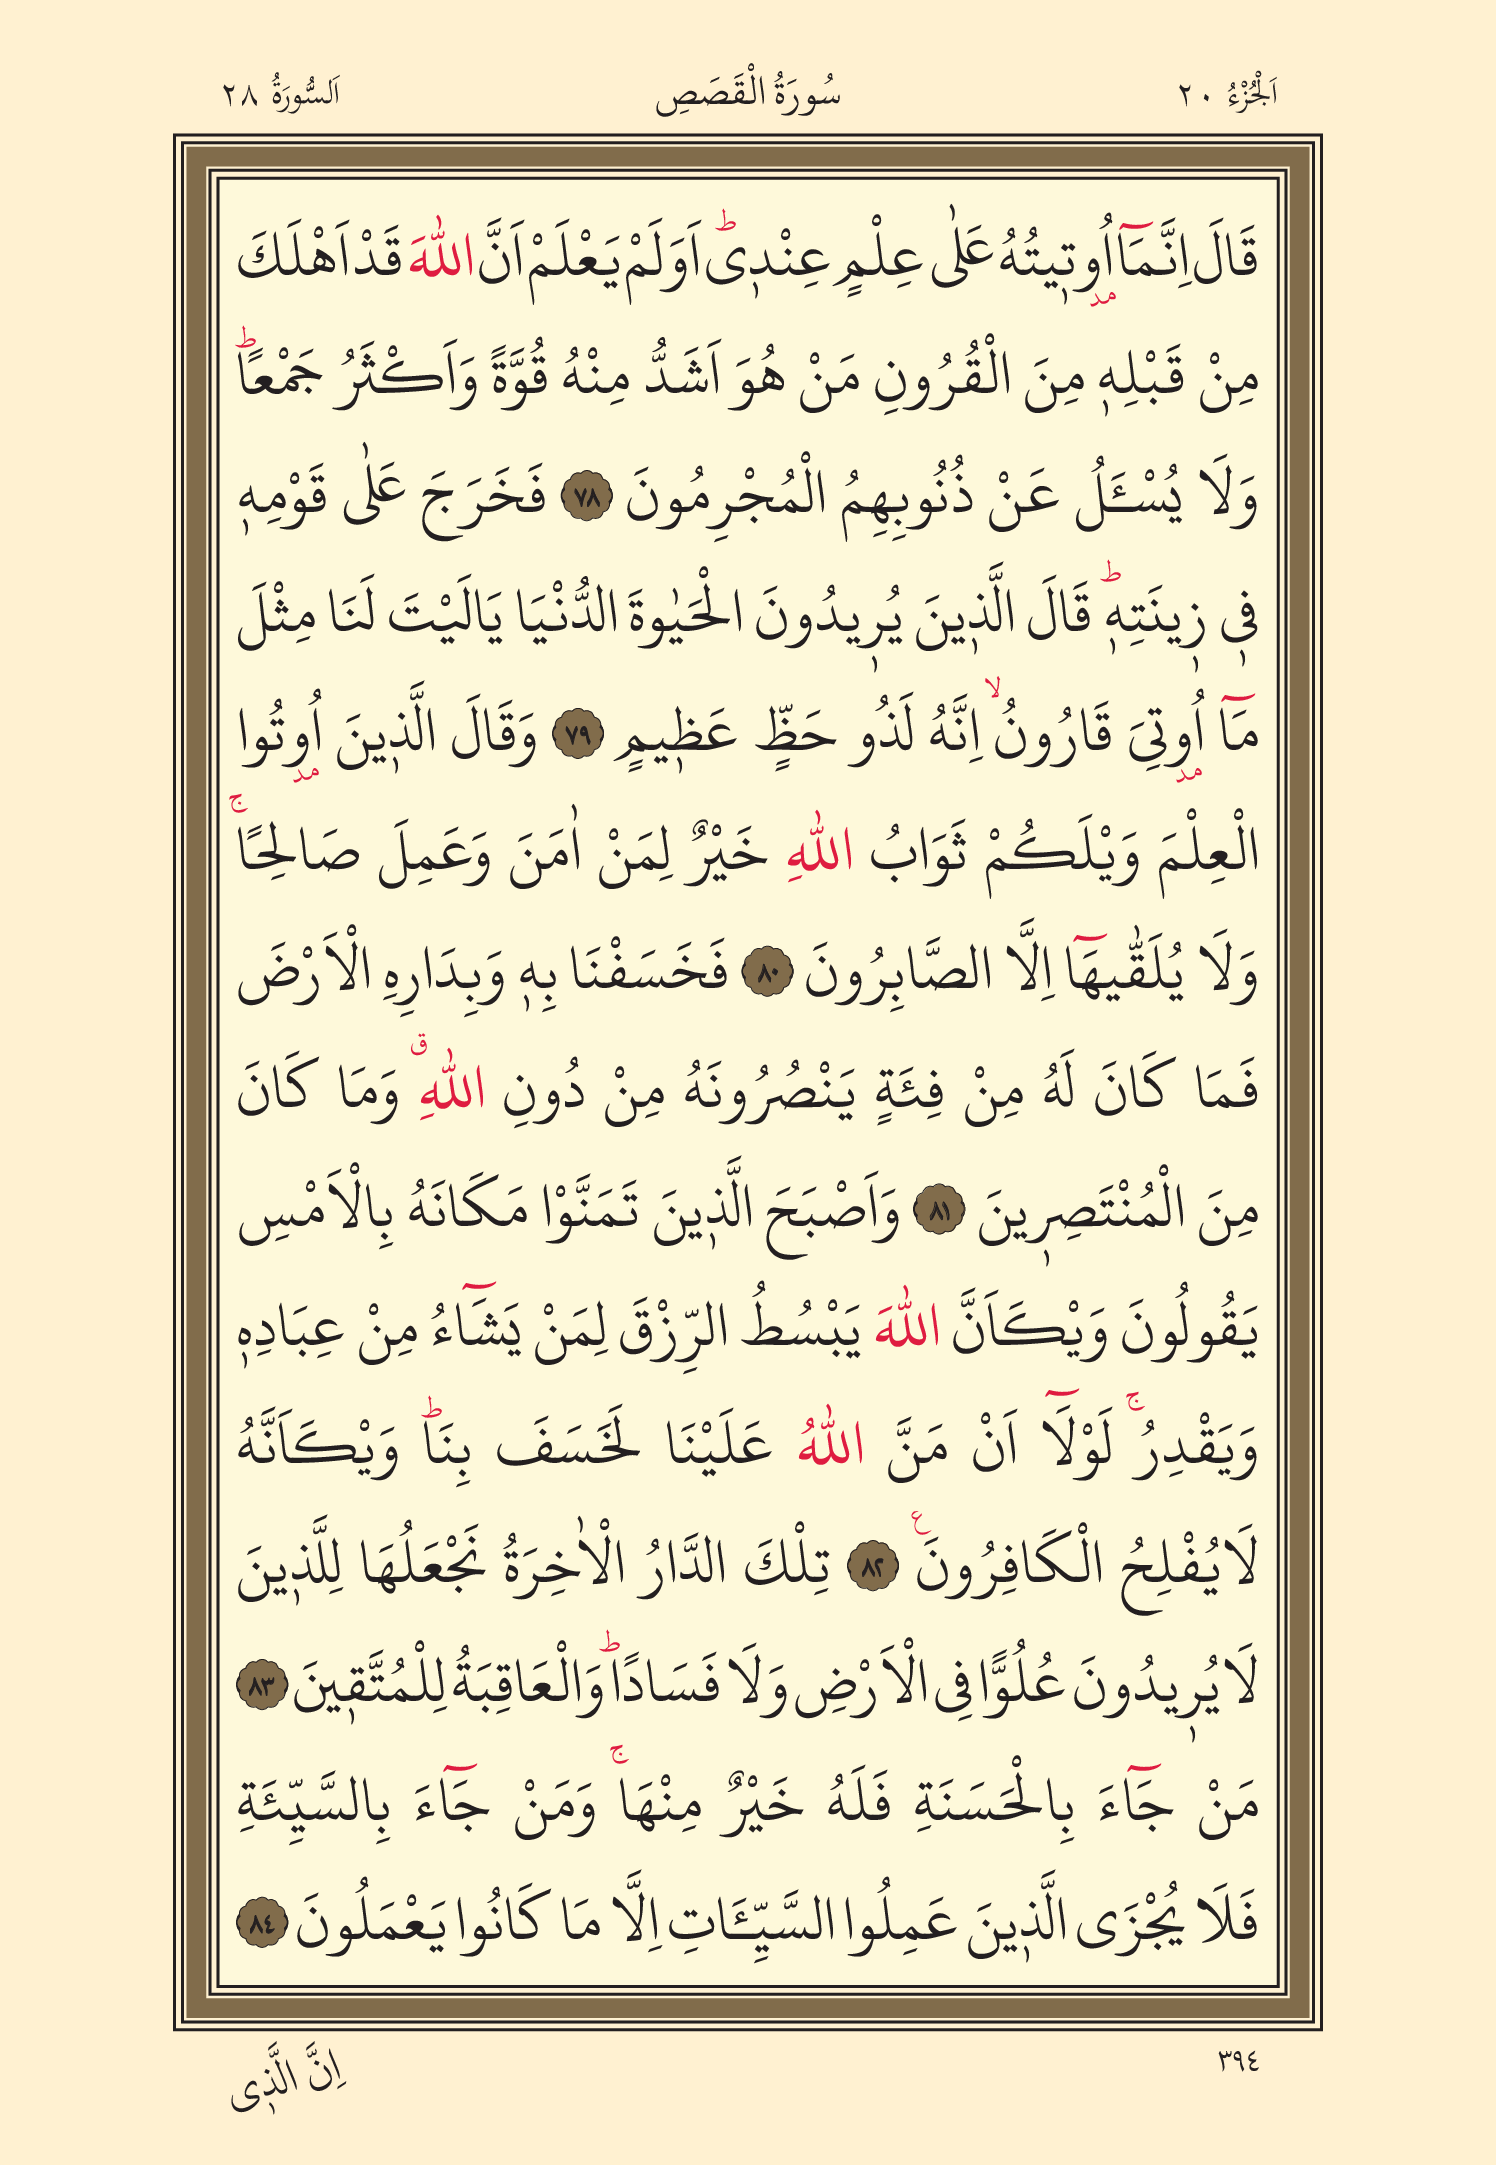 اَلْجُزْءُ ٢٠
سُورَةُ الْقَصَصِ
اَلسُّورَةُ ٢٨
قَالَ اِنَّمَٓا اُو۫ت۪يتُهُ عَلٰى عِلْمٍ عِنْد۪يۜ اَوَلَمْ يَعْلَمْ اَنَّ اللّٰهَ قَدْ اَهْلَكَ
مِنْ قَبْلِه۪ مِنَ الْقُرُونِ مَنْ هُوَ اَشَدُّ مِنْهُ قُوَّةً وَاَكْثَرُ جَمْعًاۜ
وَلَا يُسْـَٔلُ عَنْ ذُنُوبِهِمُ الْمُجْرِمُونَ ﴿٧٨﴾ فَخَرَجَ عَلٰى قَوْمِه۪
ف۪ي ز۪ينَتِه۪ۜ قَالَ الَّذ۪ينَ يُر۪يدُونَ الْحَيٰوةَ الدُّنْيَا يَالَيْتَ لَنَا مِثْلَ
مَٓا اُو۫تِيَ قَارُونُۙ اِنَّهُ لَذُو حَظٍّ عَظ۪يمٍ ﴿٧٩﴾ وَقَالَ الَّذ۪ينَ اُو۫تُوا
الْعِلْمَ وَيْلَكُمْ ثَوَابُ اللّٰهِ خَيْرٌ لِمَنْ اٰمَنَ وَعَمِلَ صَالِحًاۚ
وَلَا يُلَقّٰيهَٓا اِلَّا الصَّابِرُونَ ﴿٨٠﴾ فَخَسَفْنَا بِه۪ وَبِدَارِهِ الْاَرْضَ
فَمَا كَانَ لَهُ مِنْ فِئَةٍ يَنْصُرُونَهُ مِنْ دُونِ اللّٰهِۗ وَمَا كَانَ
مِنَ الْمُنْتَصِر۪ينَ ﴿٨١﴾ وَاَصْبَحَ الَّذ۪ينَ تَمَنَّوْا مَكَانَهُ بِالْاَمْسِ
يَقُولُونَ وَيْكَاَنَّ اللّٰهَ يَبْسُطُ الرِّزْقَ لِمَنْ يَشَٓاءُ مِنْ عِبَادِه۪
وَيَقْدِرُۚ لَوْلَٓا اَنْ مَنَّ اللّٰهُ عَلَيْنَا لَخَسَفَ بِنَاۜ وَيْكَاَنَّهُ
لَا يُفْلِحُ الْكَافِرُونَ۟ ﴿٨٢﴾ تِلْكَ الدَّارُ الْاٰخِرَةُ نَجْعَلُهَا لِلَّذ۪ينَ
لَا يُر۪يدُونَ عُلُوًّا فِي الْاَرْضِ وَلَا فَسَادًاۜ وَالْعَاقِبَةُ لِلْمُتَّق۪ينَ ﴿٨٣﴾
مَنْ جَٓاءَ بِالْحَسَنَةِ فَلَهُ خَيْرٌ مِنْهَاۚ وَمَنْ جَٓاءَ بِالسَّيِّئَةِ
فَلَا يُجْزَى الَّذ۪ينَ عَمِلُوا السَّيِّـَٔاتِ اِلَّا مَا كَانُوا يَعْمَلُونَ ﴿٨٤﴾
٣٩٤
اِنَّ الَّذ۪ي